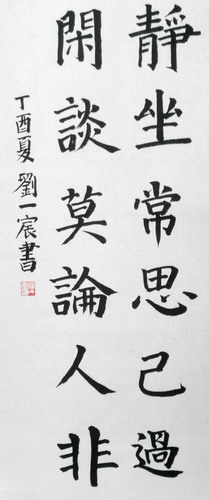 靜坐常思己過
閑談莫論人非
丁酉夏劉一宸書